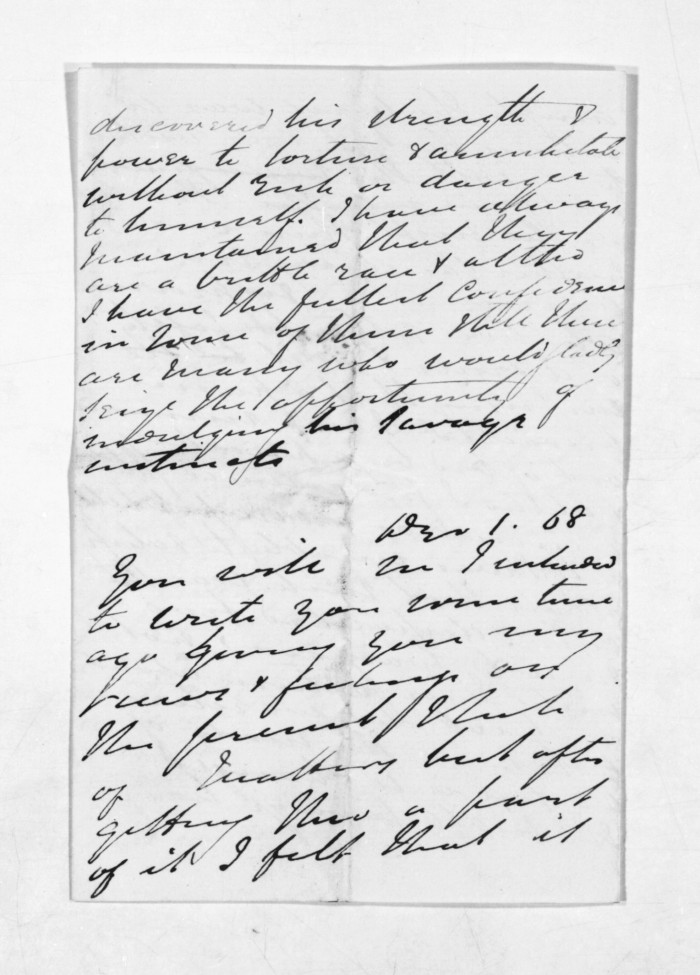 discovered his strength &
power to torture & annihilate
without risk or danger
to himself. I have always
maintained that they
are a brittle race & altho
I have the fullest confidence
in some of them still there
are many who would gladly
seize the opportunity of
indulging his savage
instincts
Decr 1. 68
You will see I intended
to write you some time
ago giving you my
views & feelings on
the present state
of matters but after
getting thro a part
of it I felt that it